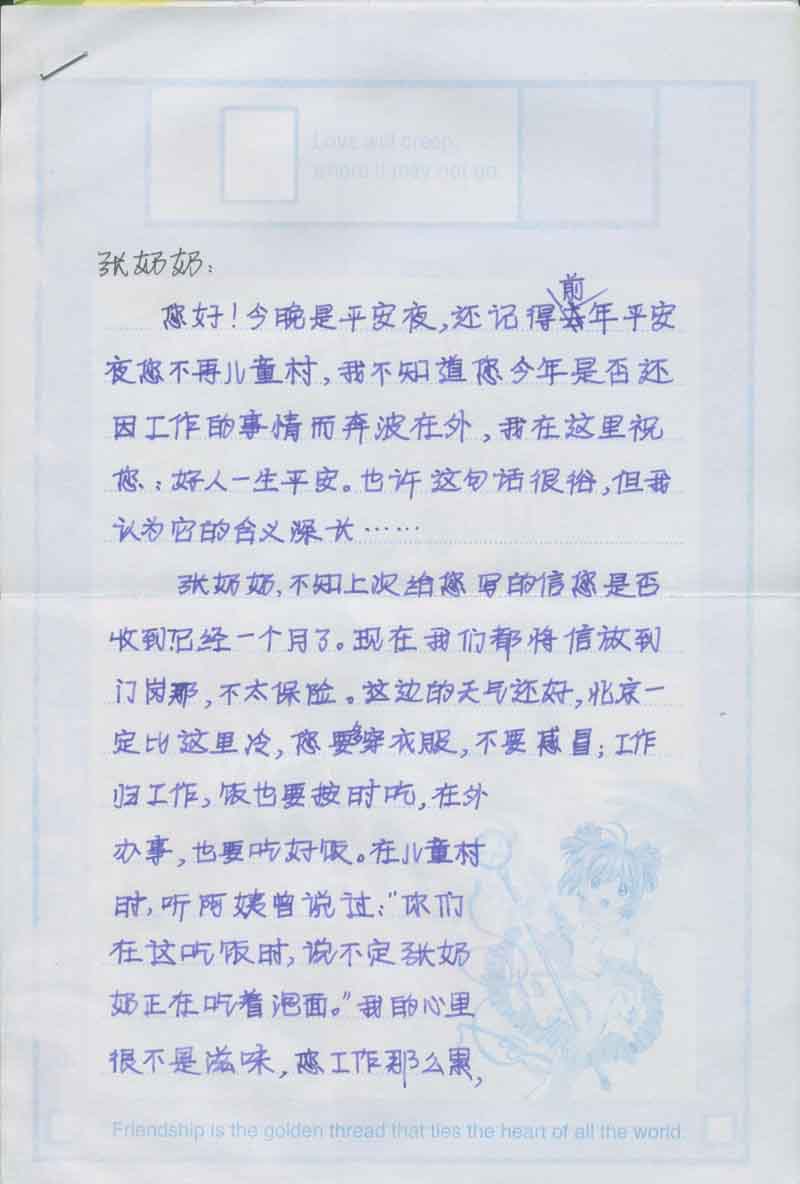 Love will creep,
where it may not go.
张奶奶：
您好！今晚是平安夜，还记得前年平安
夜您不再儿童村，我不知道您今年是否还
因工作的事情而奔波在外，我在这里祝
您：好人一生平安。也许这句话很俗，但我
认为它的含义深长……
张奶奶，不知上次给您写的信您是否
收到？已经一个月了。现在我们都将信放到
门岗那，不太保险。这边的天气还好，北京一
定比这里冷，您要多穿衣服，不要感冒；工作
归工作，饭也要按时吃，在外
办事，也要吃好饭。在儿童村
时，听阿姨曾说过：“你们
在这吃饭时，说不定张奶
奶正在吃着泡面。”我的心里
很不是滋味，您工作那么累，
Friendship is the golden thread that ties the heart of all the world.